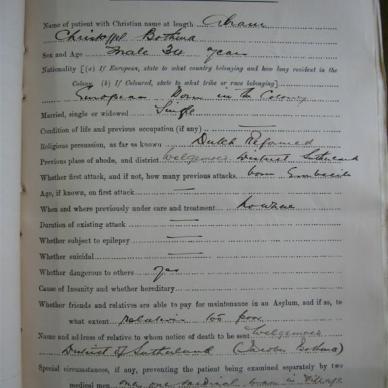 Name of patient with Christian name at length Abram
Christoffel Bothma
Sex and Age Male 34 years
Nationality [(a) If European, state to what country belonging and how long resident in the
Colony. (b) If Coloured, state to what tribe or race belonging]
European Born in the Colony
Married, single or widowed Single
Condition of life and previous occupation (if any) —
Religious persuasion, as far as known Dutch Reformed
Previous place of abode, and district Welgemoed District Sutherland
Whether first attack, and if not, how many previous attacks. born Imbecile
Age, if known, on first attack —
When and where previously under care and treatment nowhere
Duration of existing attack —
Whether subject to epilepsy —
Whether suicidal —
Whether dangerous to others yes
Cause of Insanity and whether hereditary —
Whether friends and relatives are able to pay for maintenance in an Asylum, and if so, to
what extent relatives too poor
Name and address of relative to whom notice of death to be sent Welgemoed
District of Sutherland (Jacobus Bothma)
Special circumstances, if any, preventing the patient being examined separately by two
medical men only one medical man in Village